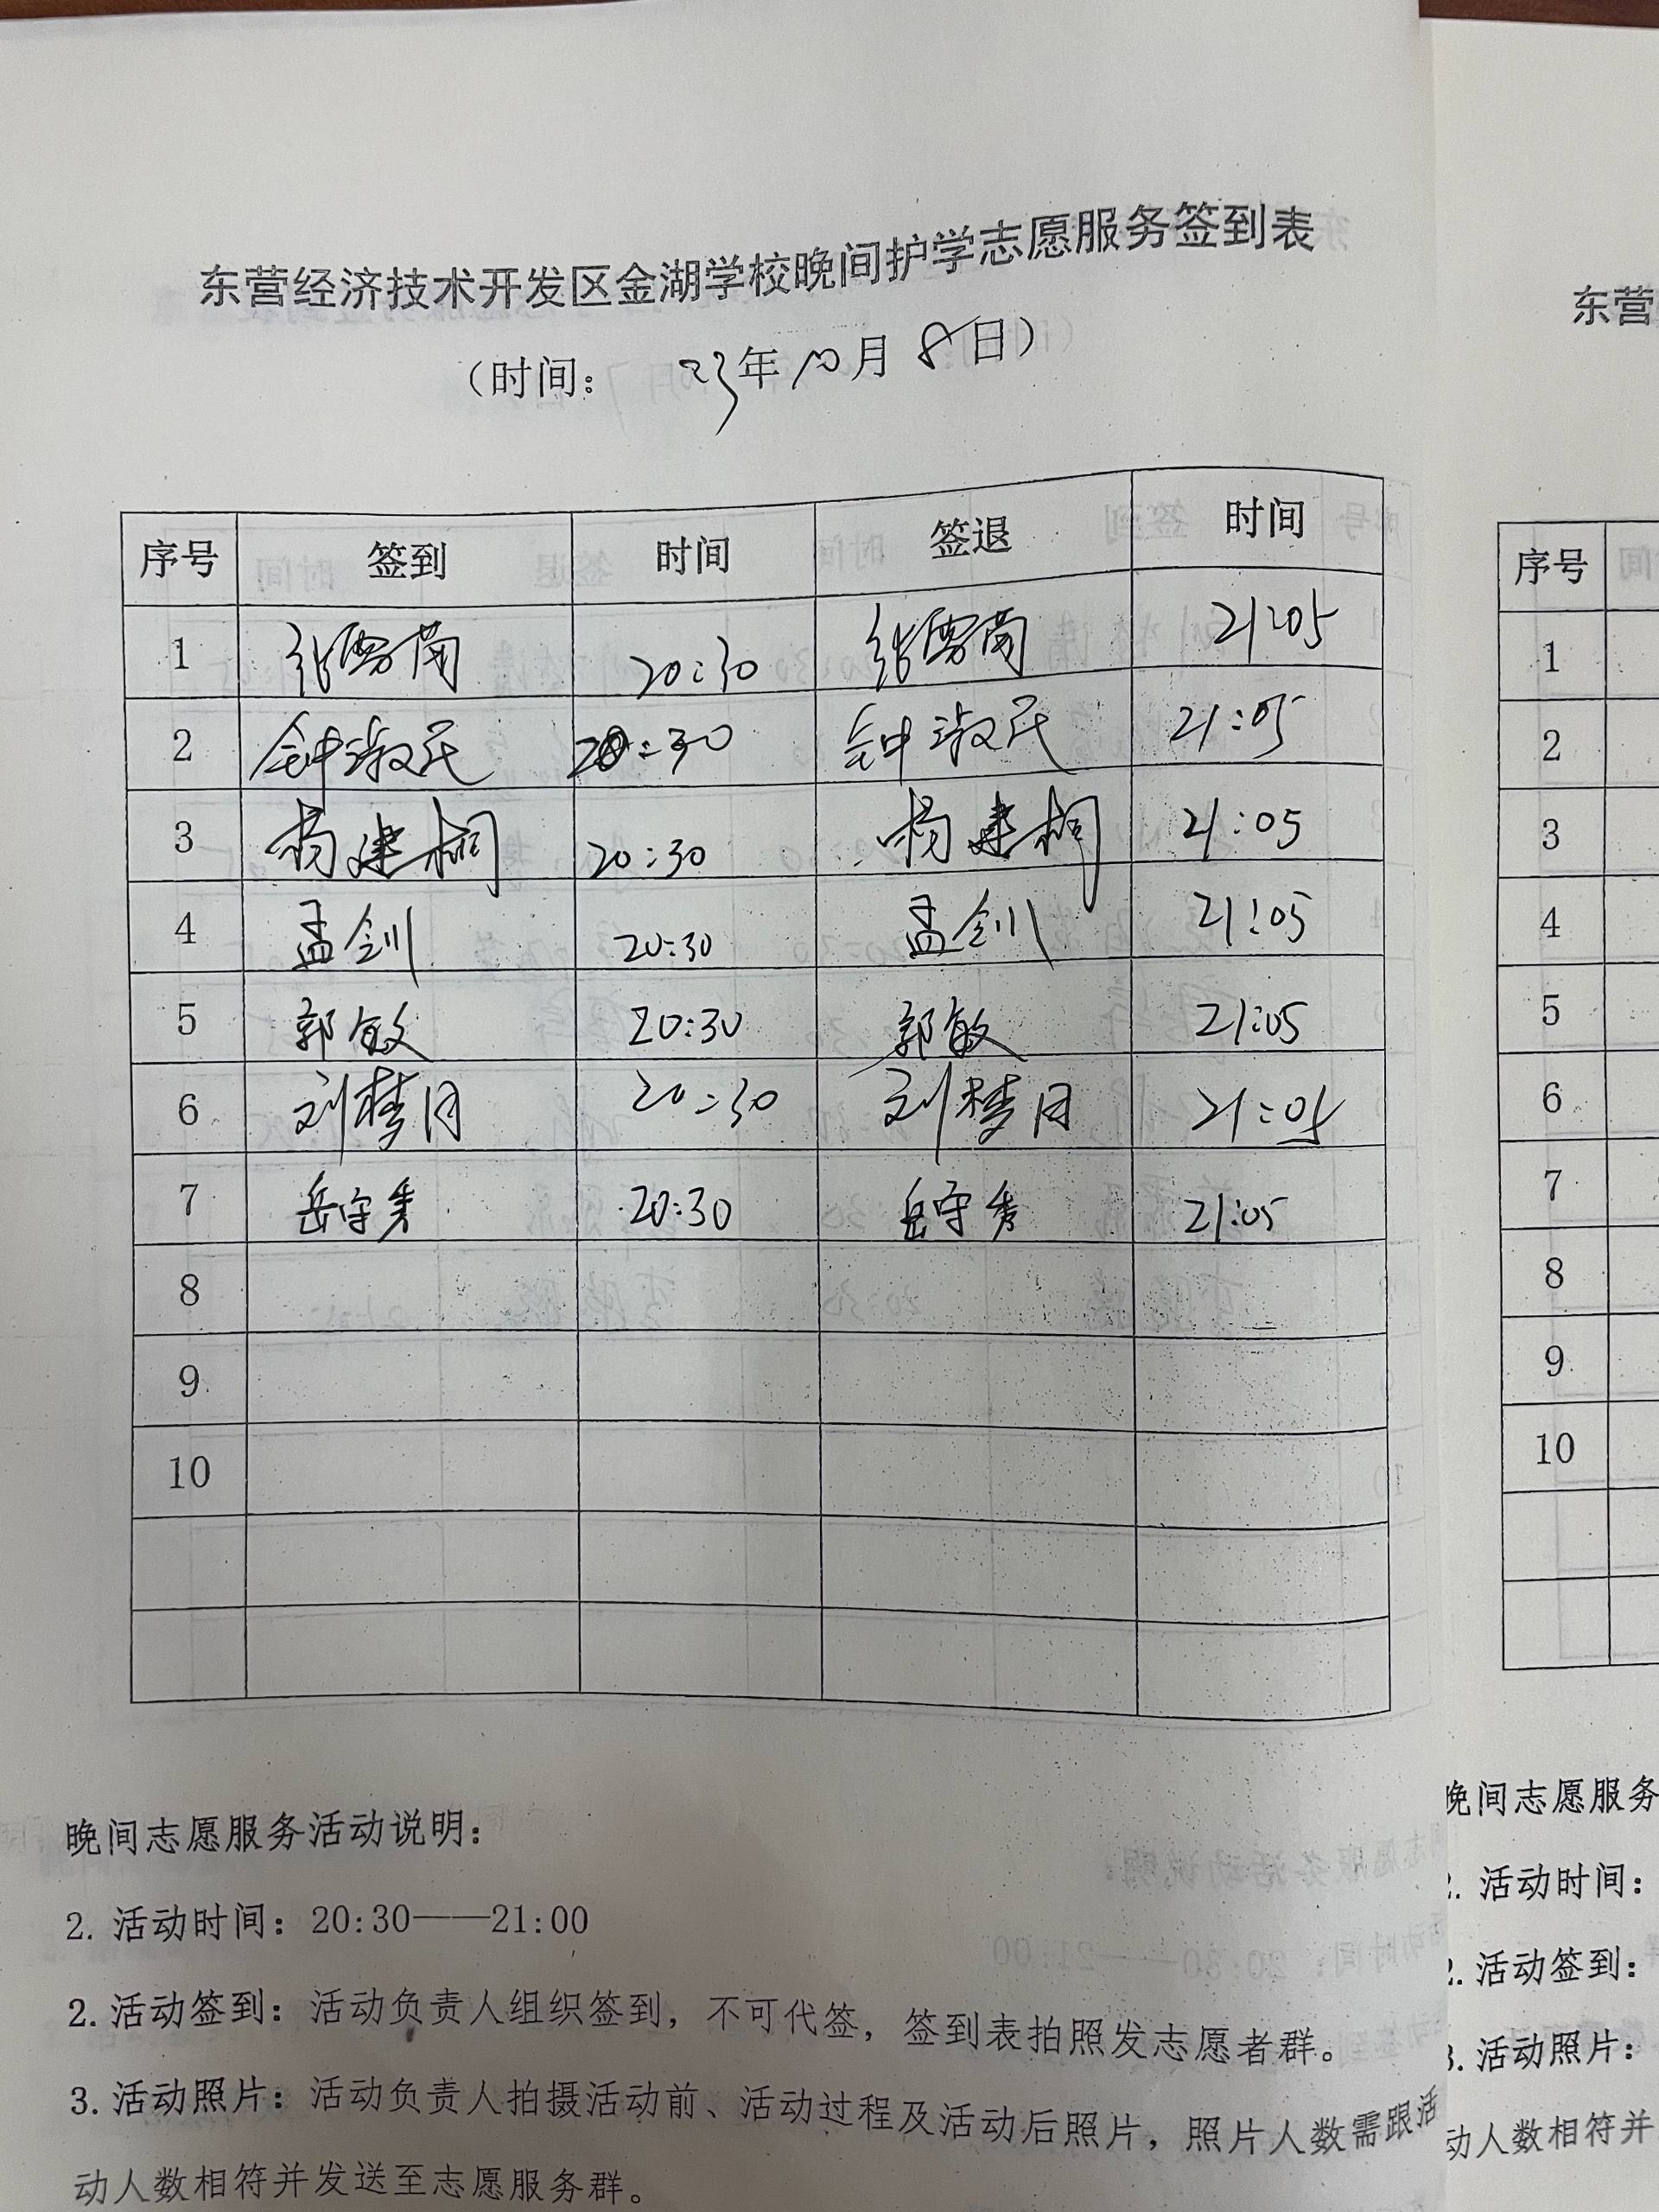 东营经济技术开发区金湖学校晚间护学志愿服务签到表
（时间： 23年10月8日）
序号 签到 时间 签退 时间
1 张雪南 20:30 张雪南 21:05
2 钟淑民 20:30 钟淑民 21:05
3 杨建桐 20:30 杨建桐 21:05
4 孟剑 20:30 孟剑 21:05
5 郭敏 20:30 郭敏 21:05
6 刘梦月 20:30 刘梦月 21:05
7 岳守秀 20:30 岳守秀 21:05
8
9
10
晚间志愿服务活动说明：
2. 活动时间：20:30——21:00
2. 活动签到：活动负责人组织签到，不可代签，签到表拍照发志愿者群。
3. 活动照片：活动负责人拍摄活动前、活动过程及活动后照片，照片人数需跟活
动人数相符并发送至志愿服务群。
东营
序号
1
2
3
4
5
6
7
8
9
10
晚间志愿服务
2. 活动时间：
2. 活动签到：
3. 活动照片：
动人数相符并